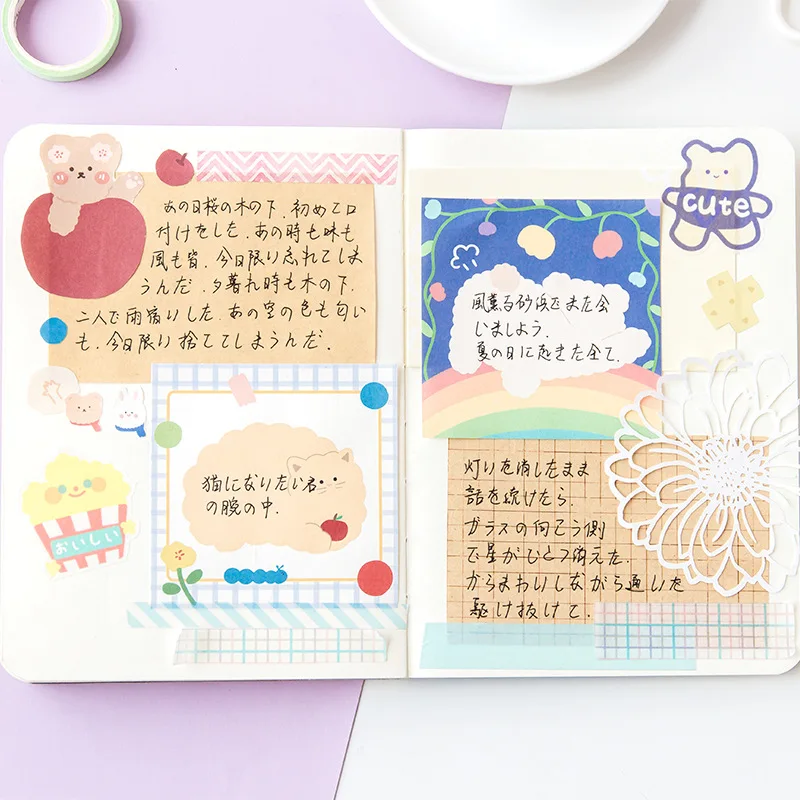 あの日桜の木の下.初めて口
付けをした.あの時も味も
風も皆.今日限り忘れてしま
うんだ.夕暮れ時も木の下.
二人で雨宿りした.あの空の色も匂い
も.今日限り捨ててしまうんだ.
猫になりたい君
の腕の中.
おいしい
cute
風薫る砂浜でまた会
いましよう.
夏の日に起きた全て.
灯りを消したまま
話を続けたら.
ガラスの向こう側
で星がひとつ消えた.
からまわいしながら通いた
駆け抜けて.